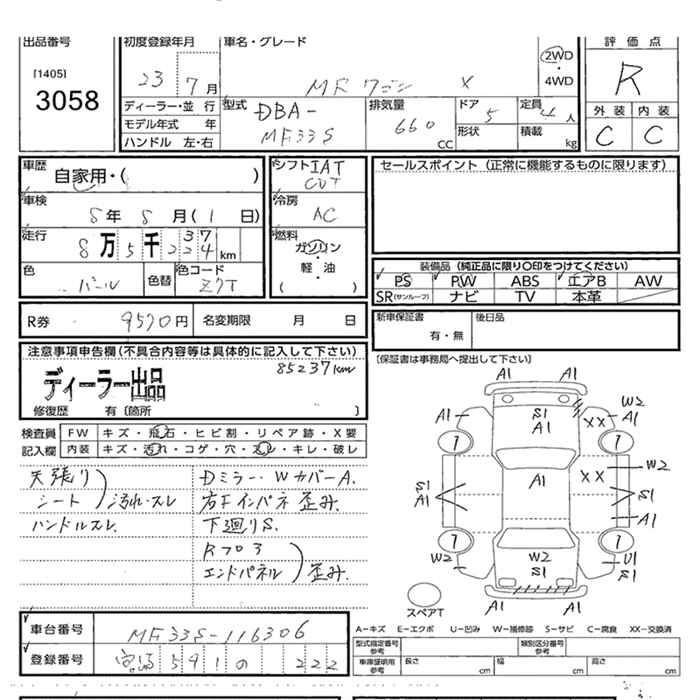 出品番号 初度登録年月 車名・グレード 評価点
[1405] 3058
23 7月 MRワゴン X 2WD・4WD R
ディーラー・並行 型式 DBA-MF33S 排気量 660 CC ドア 5 定員 4人
モデル年式 年 形状 積載 kg
ハンドル 左・右
外装 内装
C C
車歴 自家用・( )
車検 5年 5月(1日)
走行 8万5千2237 4km
色 パール 色替 色コード Z7T
シフト IAT CVT
冷房 AC
燃料 ガソリン・軽・油
( )
セールスポイント(正常に機能するものに限ります)
装備品(純正品に限り〇印をつけてください)
PS PW ABS エアB AW
SR(サンルーフ) ナビ TV 本革
R券 9570円 名変期限 月 日
新車保証書 有・無 後日品
(保証書は事務局へ提出して下さい)
注意事項申告欄(不具合内容等は具体的に記入して下さい)
85237km
ディーラー出品
修復歴 有(箇所 )
検査員 FW キズ・飛石・ヒビ割・リペア跡・X要
記入欄 内装 キズ・汚れ・コゲ・穴・スレ・キレ・破レ
天張り Dミラー・WカバーA.
シート)汚れ・スレ 右Fインパネ歪み.
ハンドルスレ. 下廻りS.
Rフロア
エンドパネル)歪み.
A1 A1
A1 S1 A1 XX W2 A1
1 1
S1 A1 A1 XX W2 S1 A1
1 1
W2 W2 S1 U1 S1
A1 A1
スペアT
A-キズ E-エクボ U-凹み W-補修跡 S-サビ C-腐食 XX-交換済
車台番号 MF33S-116306
登録番号 宮崎 591 の 222
型式指定番号 参考 類別区分番号 参考
車庫証明用 参考 長さ cm 幅 cm 高さ cm